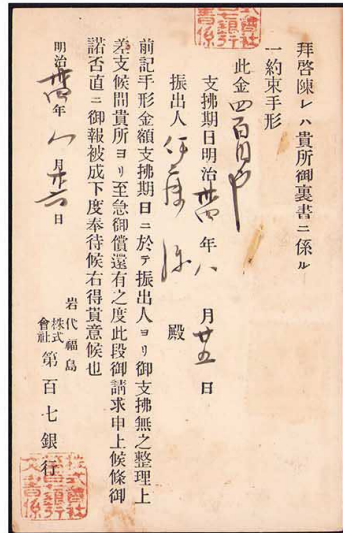 拜啓陳レハ貴所御裏書ニ係ル
一約束手形
此金四百円也
支拂期日明治卅四年八月廿五日
振出人伊藤 殿
前記手形金額支拂期日ニ於テ振出人ヨリ御支拂無之整理上
差支候間貴所ヨリ至急御償還有之度此段御請求申上候條御
諾否直ニ御報被成下度奉待候右得貴意候也
明治卅四年八月廿六日
岩代福島
株式會社第百七銀行
株式會社
第百七銀行
文書係